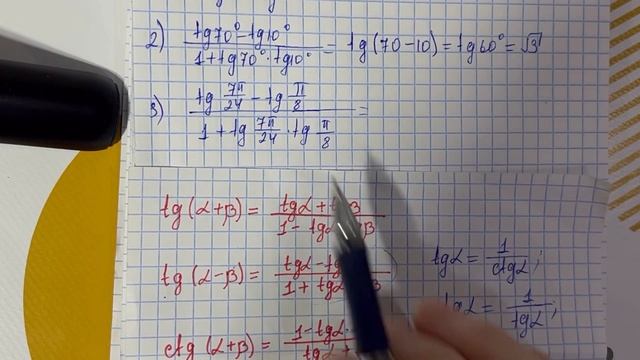 2) (tg70° - tg10°) / (1 + tg70° · tg10°) = tg(70 - 10) = tg60° = √3
3) (tg 7π/24 - tg π/8) / (1 + tg 7π/24 · tg π/8) =
tg(α+β) = (tgα + t β) / (1 - tgα β)
tg(α-β) = (tgα - tg) / (1 + tgα β)
tgα = 1/ctgα;
gα = 1/tgα;
ctg(α+β) = (1 - tgα ·) / (tgα +